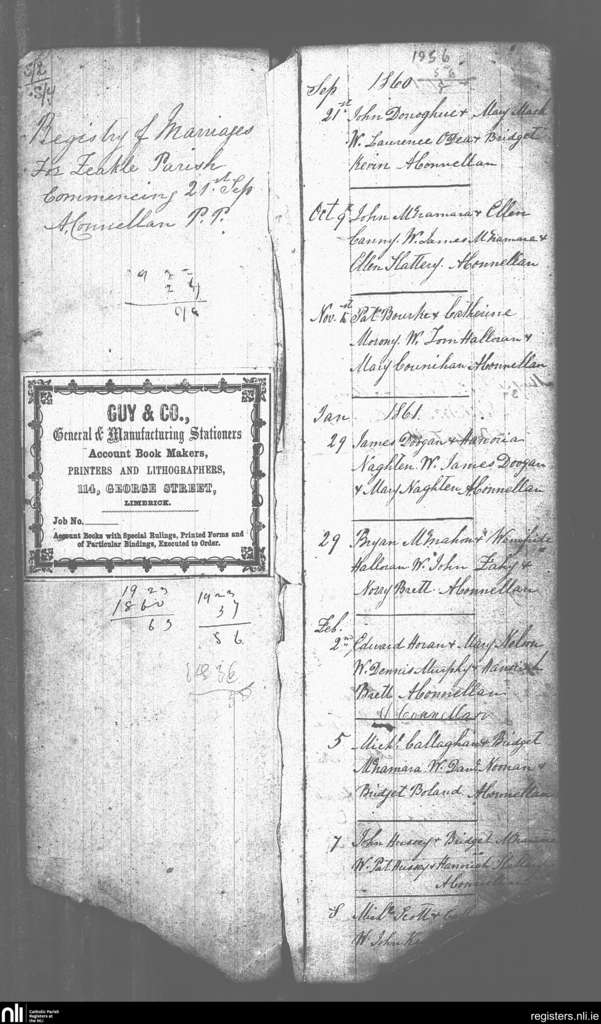 3/2
3/4
Registry of Marriages
For Feakle Parish
Commencing 21.st Sep
A. Connellan P.P.
GUY & CO.,
General & Manufacturing Stationers
Account Book Makers,
PRINTERS AND LITHOGRAPHERS,
114, GEORGE STREET,
LIMERICK.
Job No.
Account Books with Special Rulings, Printed Forms and
of Particular Bindings, Executed to Order.
1923
1860
63
1923
37
86
1836
1956
Sep 1860
21st John Donoghue & Mary Mack
W. Laurence O'Dea & Bridget
Kerin AConnellan
Oct 9th John McNamara & Ellen
Canny. W. James McNamara &
Ellen Slattery. AConnellan
Nov. 1st Pat Bourke & Catherine
Morony. W. Tom Halloran &
Mary Counihan AConnellan
Jan 1861.
29 James Doogan & Hanoria
Naghten W. James Doogan
& Mary Naghten AConnellan
29 Bryan McMahon & Winifride
Halloran W. John Fahy &
Norry Brett. AConnellan
Feb.
2nd Edward Horan & Mary Nelson
W. Dennis Murphy & Hannah
Brett AConnellan
AConnellan
5 Michl. Callaghan & Bridget
McNamara W. Danl. Noonan &
Bridget Boland AConnellan
7 John Hussey & Bridget McNamara
W. Pat Hussey & Hannah
AConnellan
8 Michl. Scott &
W. John
nli
Catholic Parish
Registers at
the NLI
registers.nli.ie